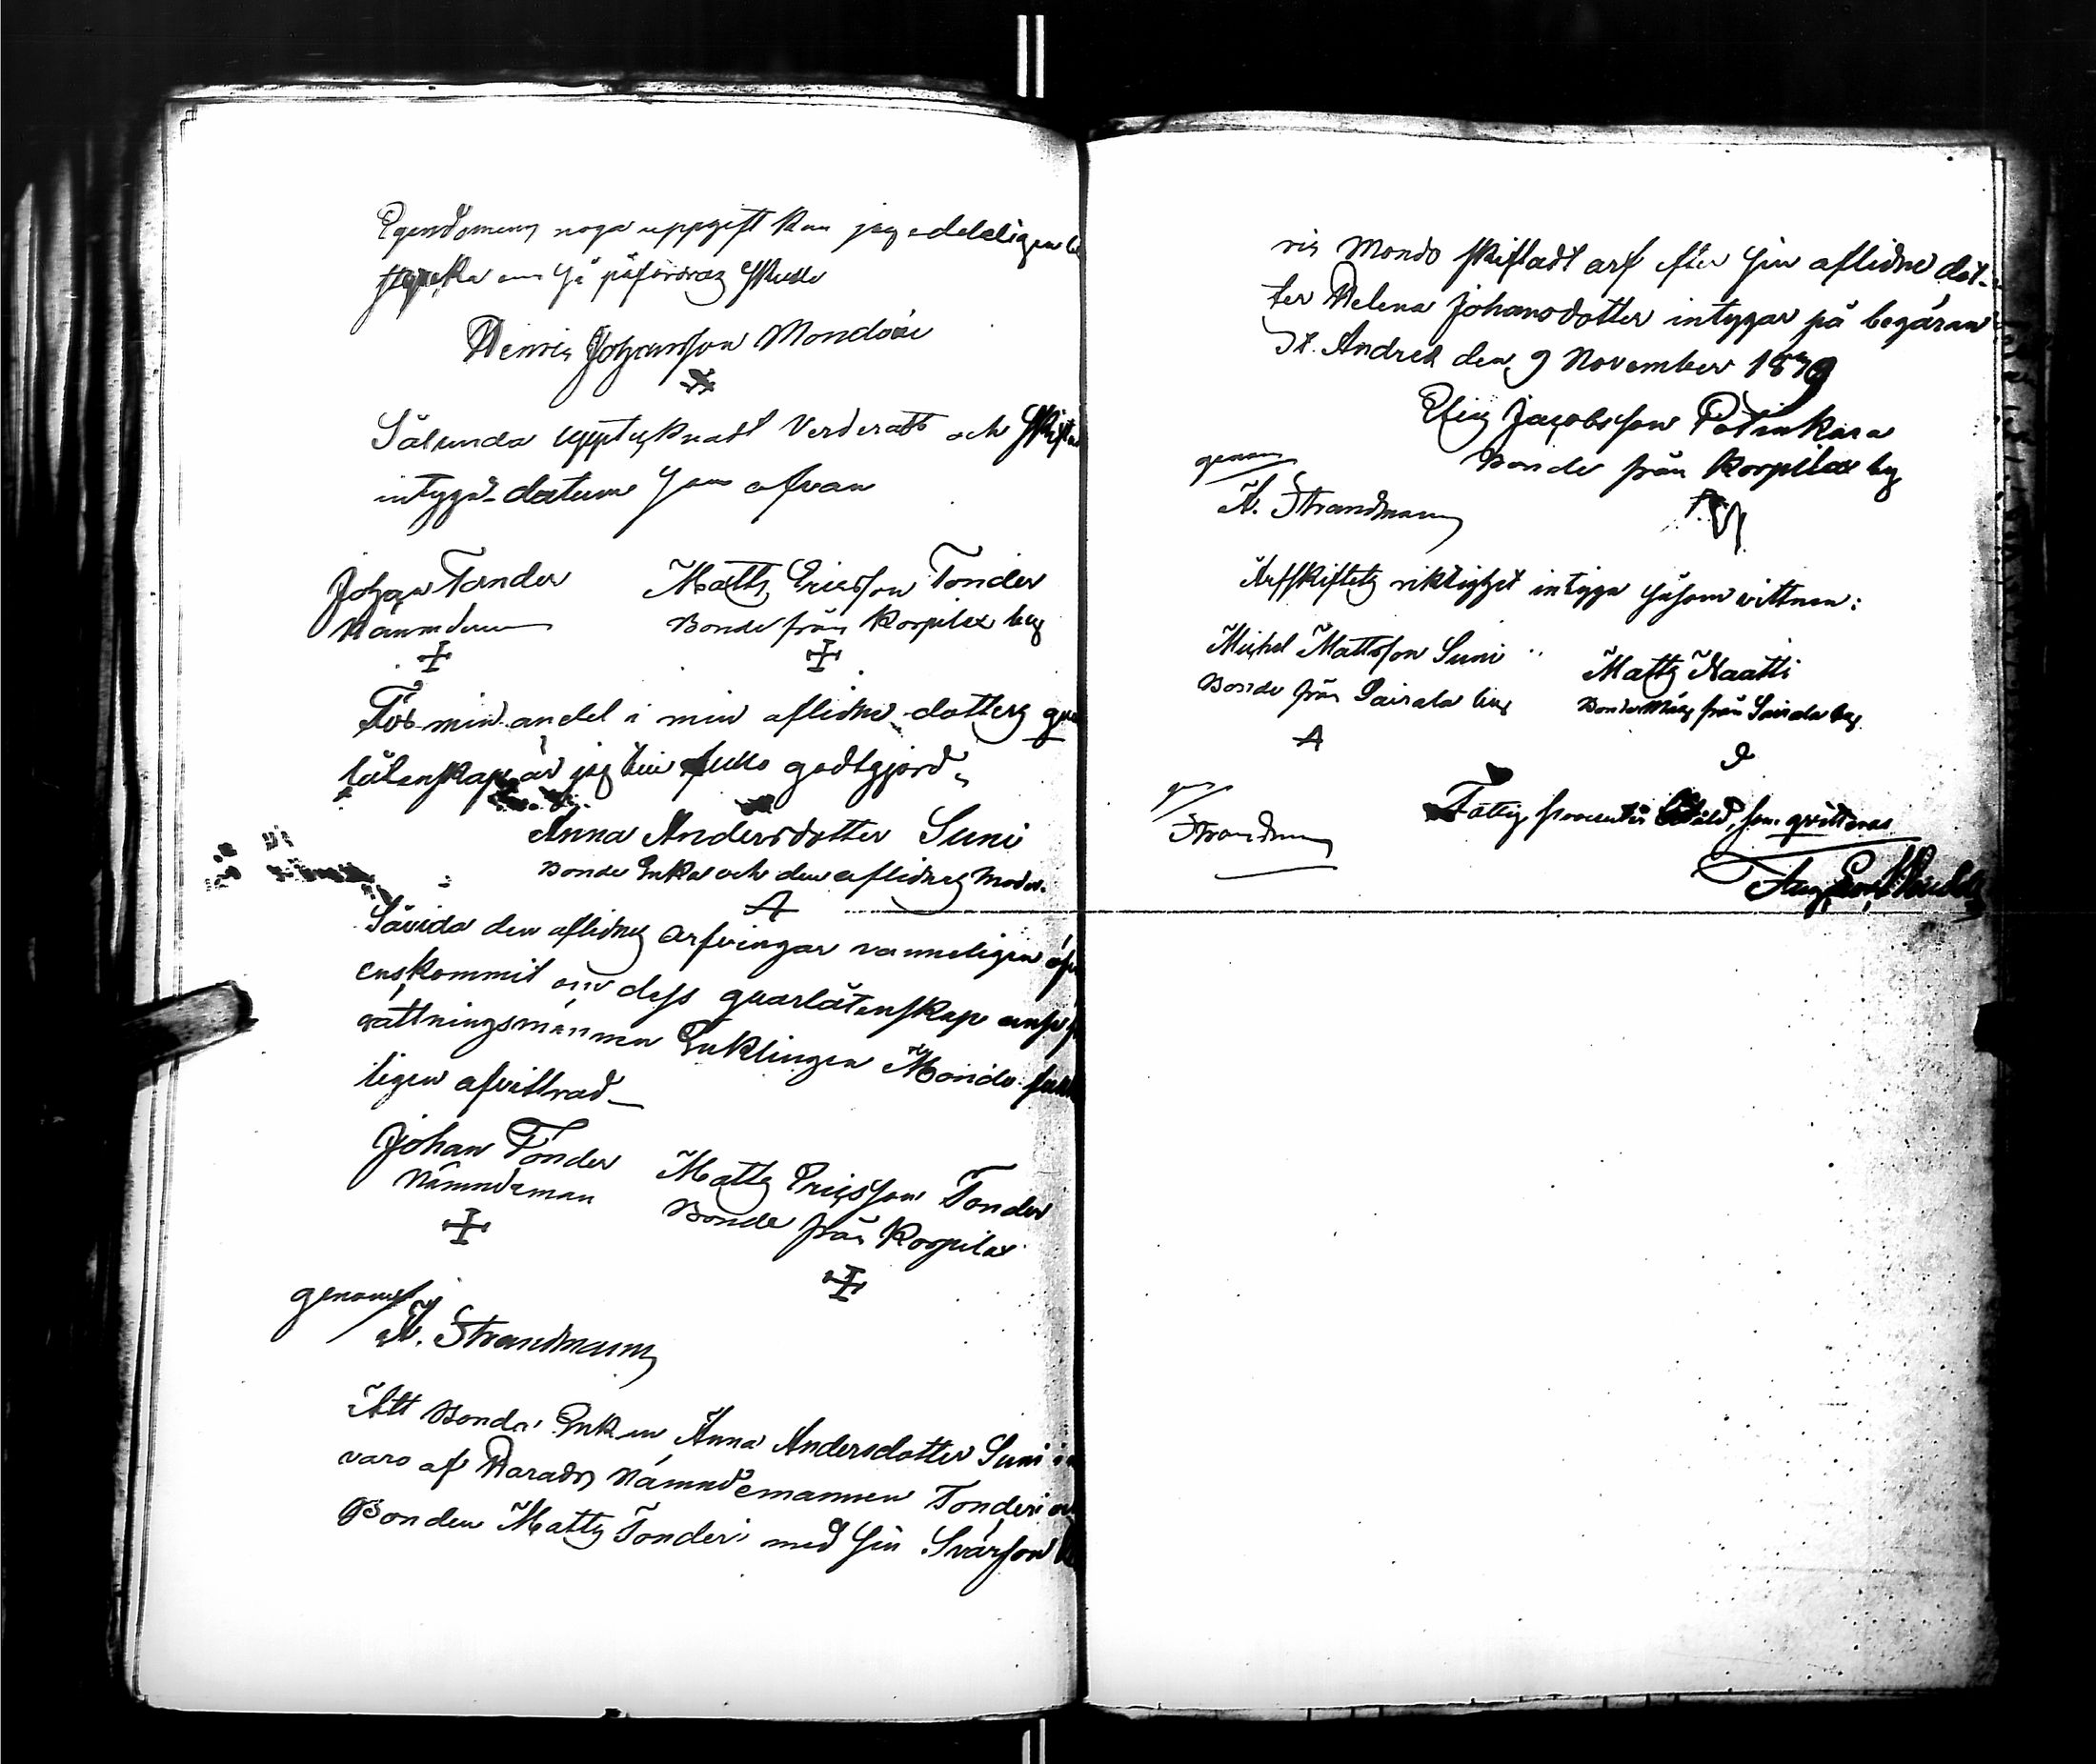 Egendomens noga uppgift kan jag edeligen be
styrka om så påfordras skulle
Henric Johansson Mondoin
Sålunda upptecknadt Verderadt och skiftadt
intyga datum som ofvan
Johan Tonder
Nämndeman
Matts Ericsson Tonder
Bonde från Korpilax by
För min andel i min aflidne dotters qvar
låtenskap är jag till fullo godtgjord.
Anna Andersdotter Suni
Bonde Enka och den aflidnes Moder.
Såvida den aflidnes arfvingar vänneligen öfver
enskommit om dess quarlåtenskap anse
rättningsmännen Enklingen Mondo
ligen afvittrad
Johan Tonder
Nämndeman
Matts Ericsson Tonder
Bonde från Korpilax
genom
A. Strandmann
Att Bonde Enkan Anna Andersdotter Suni i
varo af Harads Nämndemannen Tonder och
Bonden Matts Tonder med sin Svärson
ric Mondo skiftadt arf efter sin aflidne dot-
ter Helena Johansdotter intygar på begäran
St. Andreæ den 9 November 1879
Elias Jacobsson Potinkara
Bonde från Korpilax by
genom
A. Strandmann
Arfskiftets riktighet intyga såsom vittnen:
Michel Mattsson Suni
Bonde från Sairala by
Matts Naatti
Bonde Måg från Sairala by
gm
Strandmann
Fattig procenten som qvitteras